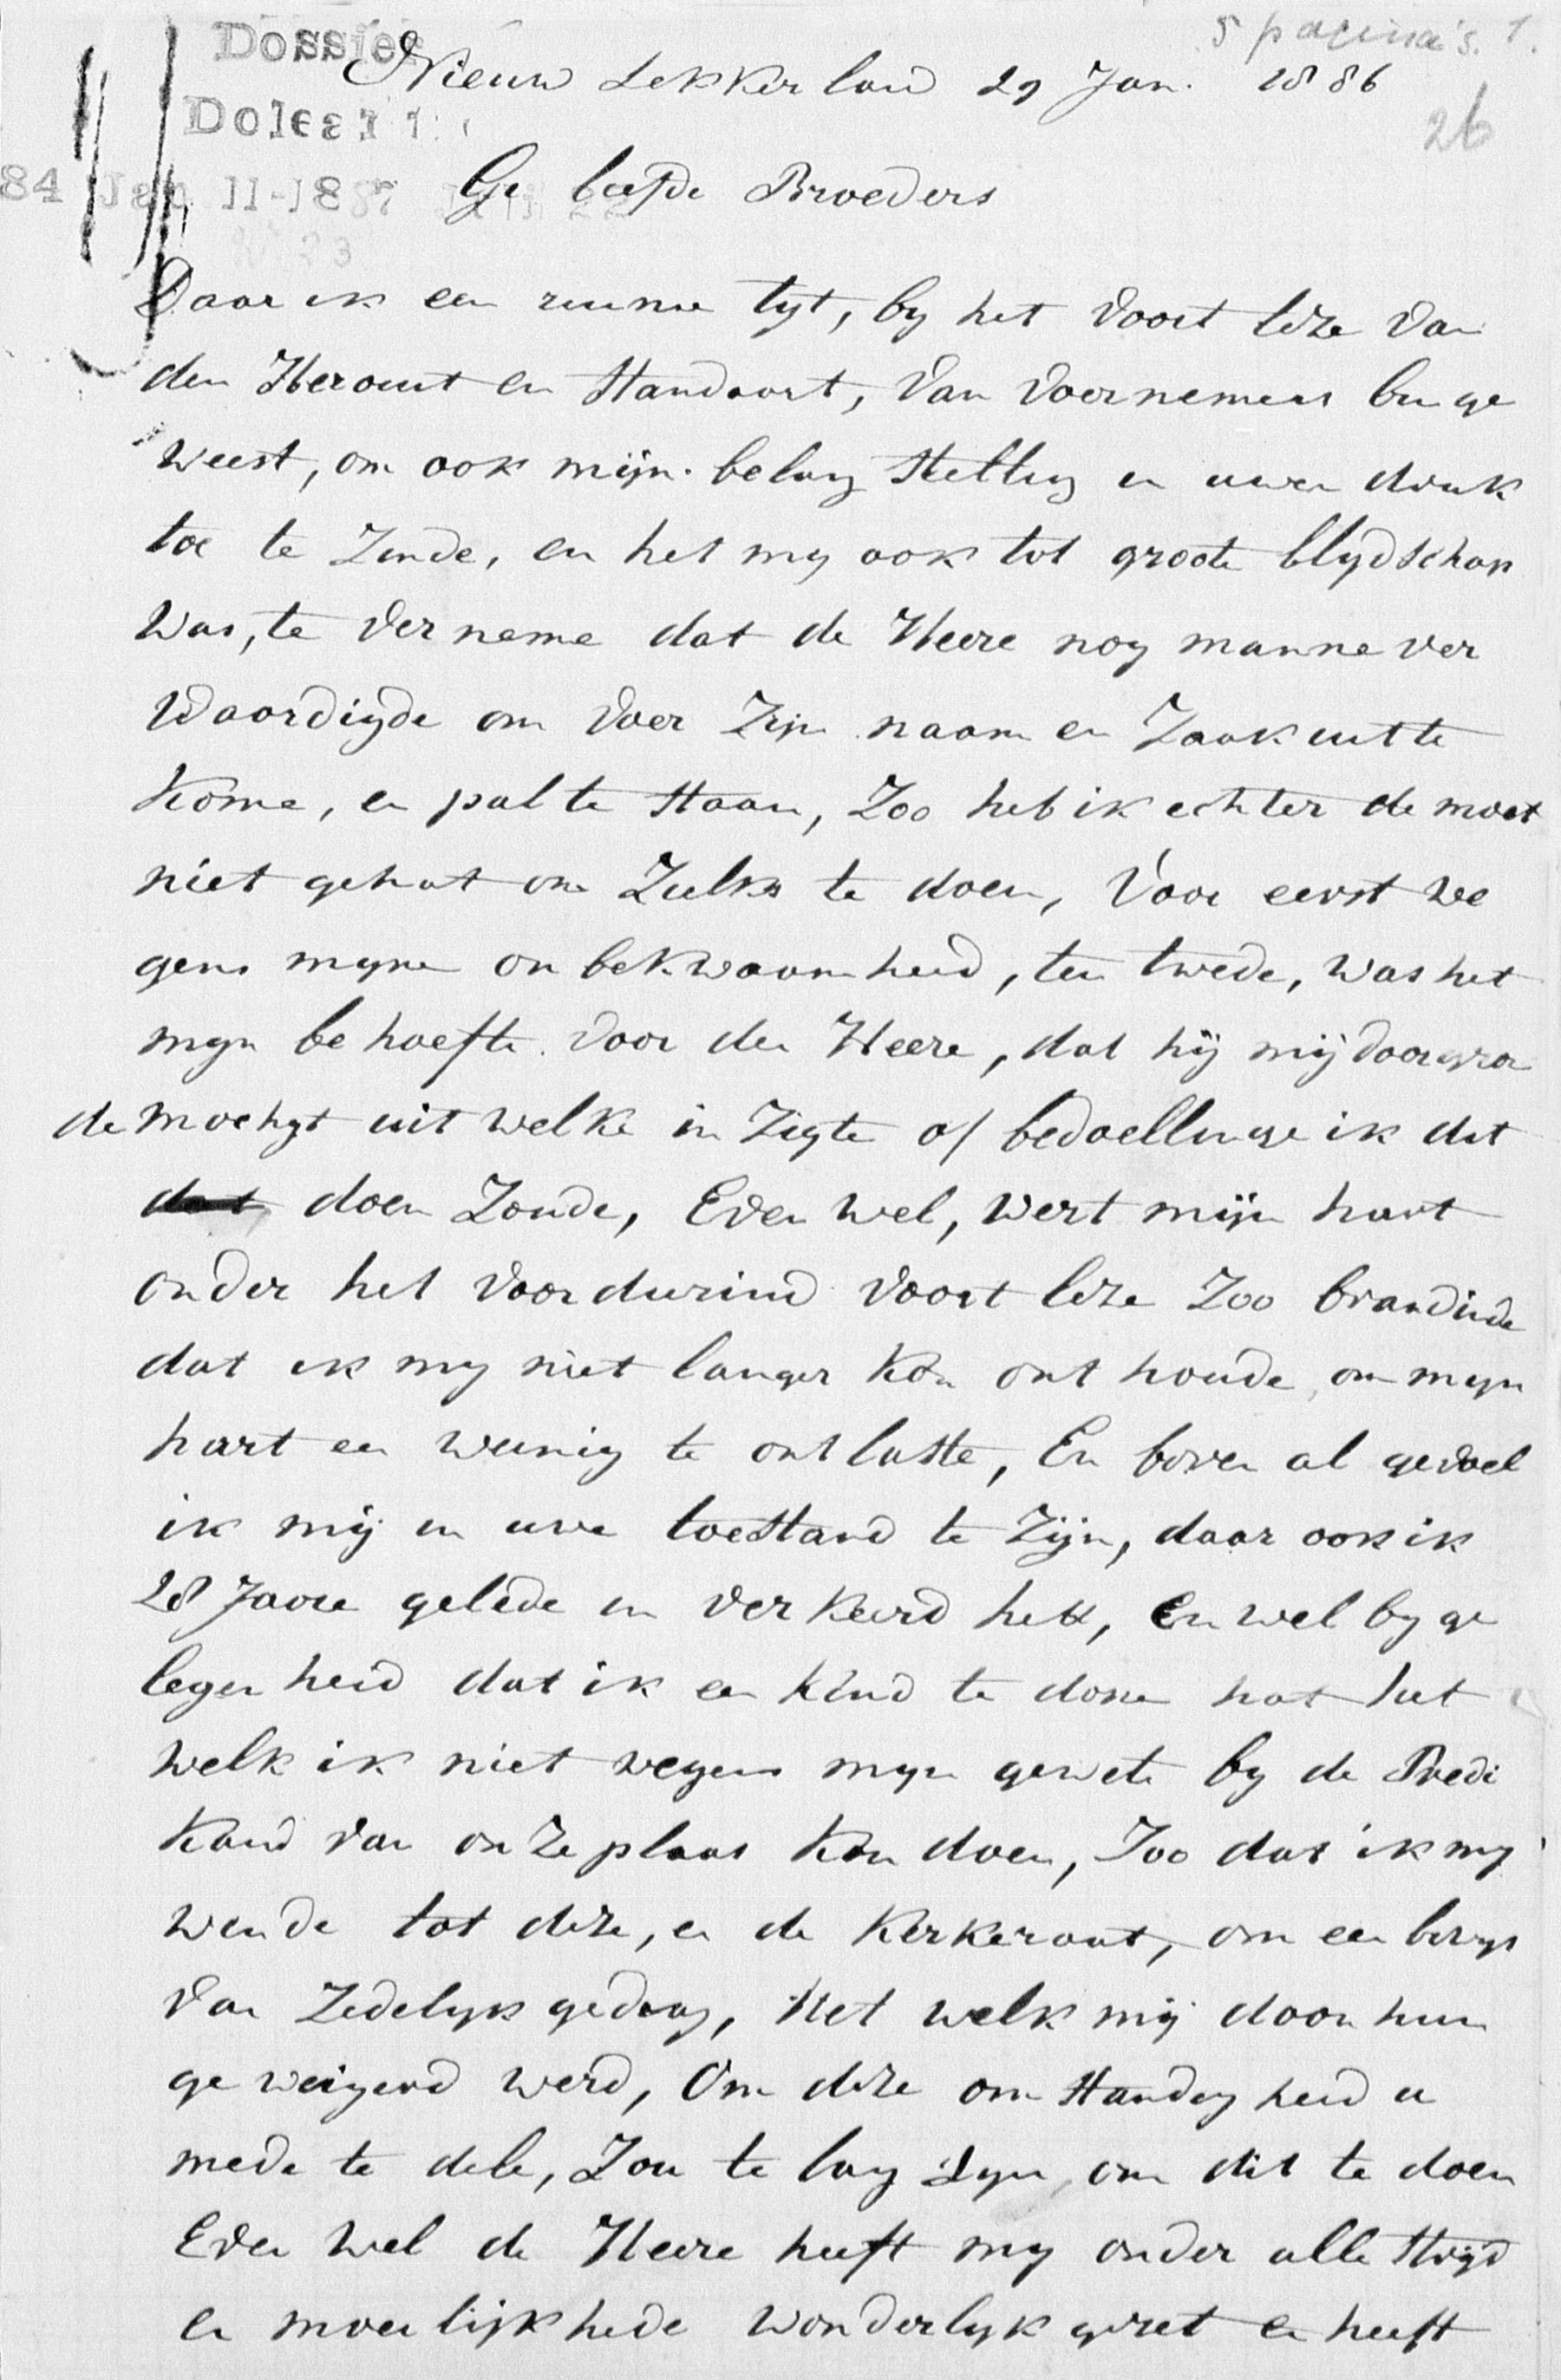 5 pagina's. 1.
Dossier
Nieuw Lekkerland 29 Jan. 1886
Doleantie
26
84 Jan 11-1887
Ge liefde Broeders
Daar ik een ruime tyt, by het voort leze van
den Heraut en Standaart, van voornemens ben ge
weest, om ook mijn belang stelling in uwen druk
toe te Zende, en het my ook tot groote blydschap
was, te ver neme dat de Heere nog manne ver
waardigde om voer Zijn naam en Zaak uit te
kome, en pal te staan, Zoo heb ik echter de moet
niet gehat om Zulks te doen, Voor eerst we
gens myne on bekwaamheid, ten twede, was het
myn be hoefte voor den Heere, dat hij mij doorgron
de mochgt uit welke in Zigte of bedoellinge ik dit
doen Zoude, Even wel, wert mijn hart
onder het voordurind voort leze Zoo brandinde
dat ik my niet langer kon ont houde, om myn
hart een weinig te ont laste, En boven al gevoel
ik mij in uwe toestand te Zijn, daar ook ik
28 Jaare gelede in ver keerd heb, En wel by ge
legen heid dat ik een kind te dopen hat het
welk ik niet wegens myn gewete by de Predi
kand van onze plaas kon doen, Zoo dat ik my
wende tot deze, en de Kerkeraat, om een bewys
van Zedelyk gedrag, Het welk mij door hun
ge weigerd werd, Om deze om standig heid u
mede te dele, Zou te lang Zyn, om dit te doen
Even wel de Heere heeft my onder alle stryd
en moeilijkhede wonderlyk geret en heeft